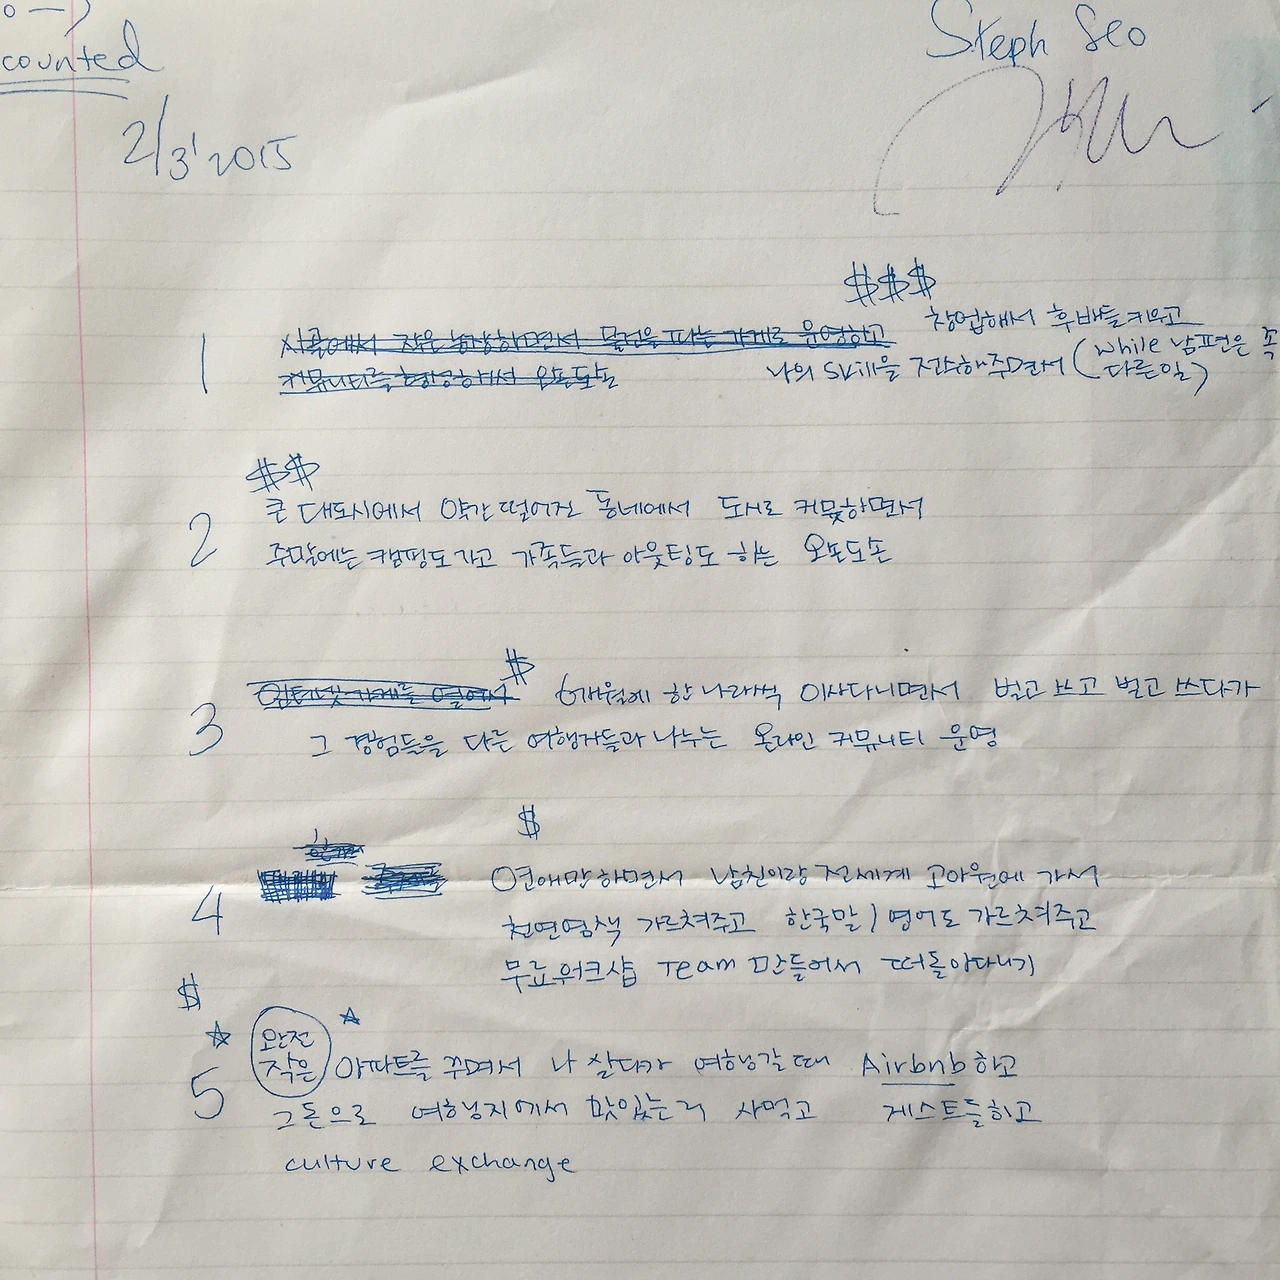 counted
Steph Seo
2/3'2015
$$$
창업해서 후배들 키우고
1 시골에서 작은 농장하면서 물건을 파는 가게로 운영하고
나의 skill을 전수해주면서 (while 남편은 쪽 다른일)
커뮤니티를 형성해서 오손도손
$$
2 큰 대도시에서 약간 떨어진 동네에서 도시로 커뮷하면서
주말에는 캠핑도 가고 가족들과 아웃팅도 하는 오손도손
$
3 인터넷가게를 열어서 6개월에 한 나라씩 이사다니면서 벌고 쓰고 벌고 쓰다가
그 경험들을 다른 여행자들과 나누는 온라인 커뮤니티 운영
$
4 연애만 하면서 남친이랑 전세계 고아원에 가서
천연염색 가르쳐주고 한국말/영어도 가르쳐주고
무료워크샵 Team 만들어서 떠돌아다니기
$
5 완전 작은 아파트를 꾸며서 나 살다가 여행갈때 Airbnb하고
그돈으로 여행지에서 맛있는거 사먹고 게스트들하고
culture exchange